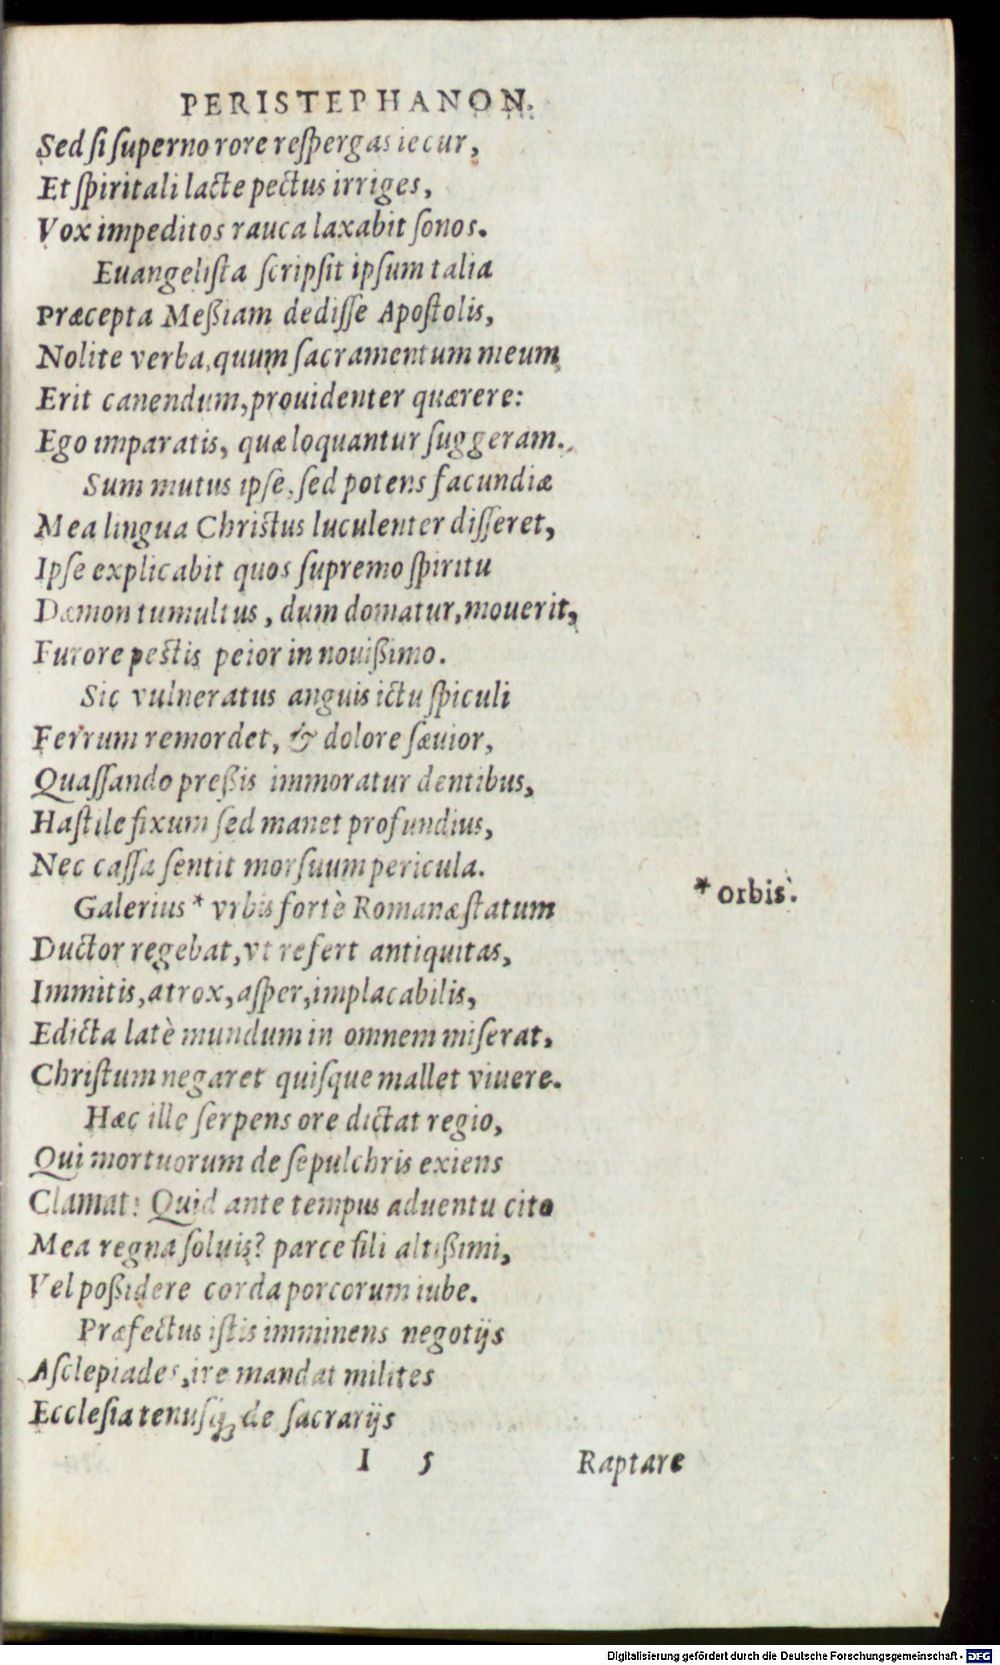 PERISTEPHANON.
Sed ſi ſuperno rore reſpergas iecur,
Et ſpiritali lacte pectus irriges,
Vox impeditos rauca laxabit ſonos.
Euangeliſta ſcripſit ipſum talia
Præcepta Meßiam dediſſe Apoſtolis,
Nolite verba, quum ſacramentum meum
Erit canendum, prouidenter quærere:
Ego imparatis, quæ loquantur ſuggeram.
Sum mutus ipſe, ſed potens facundiæ
Mea lingua Chriſtus luculenter diſſeret,
Ipſe explicabit quos ſupremo ſpiritu
Dæmon tumultus, dum domatur, mouerit,
Furore peſtis peior in nouißimo.
Sic vulneratus anguis ictu ſpiculi
Ferrum remordet, & dolore ſæuior,
Quaſſando preßis immoratur dentibus,
Haſtile fixum ſed manet profundius,
Nec caſſa ſentit morſuum pericula.
Galerius * vrbis fortè Romanæ ſtatum
* orbis.
Ductor regebat, vt refert antiquitas,
Immitis, atrox, aſper, implacabilis,
Edicta latè mundum in omnem miſerat,
Chriſtum negaret quiſque mallet viuere.
Hæc ille ſerpens ore dictat regio,
Qui mortuorum de ſepulchris exiens
Clamat: Quid ante tempus aduentu cito
Mea regna ſoluis? parce fili altißimi,
Vel poßidere corda porcorum iube.
Præfectus iſtis imminens negotijs
Aſclepiades, ire mandat milites
Eccleſia tenuſq́; de ſacrarijs
I 5 Raptare
Digitalisierung gefördert durch die Deutsche Forschungsgemeinschaft - DFG